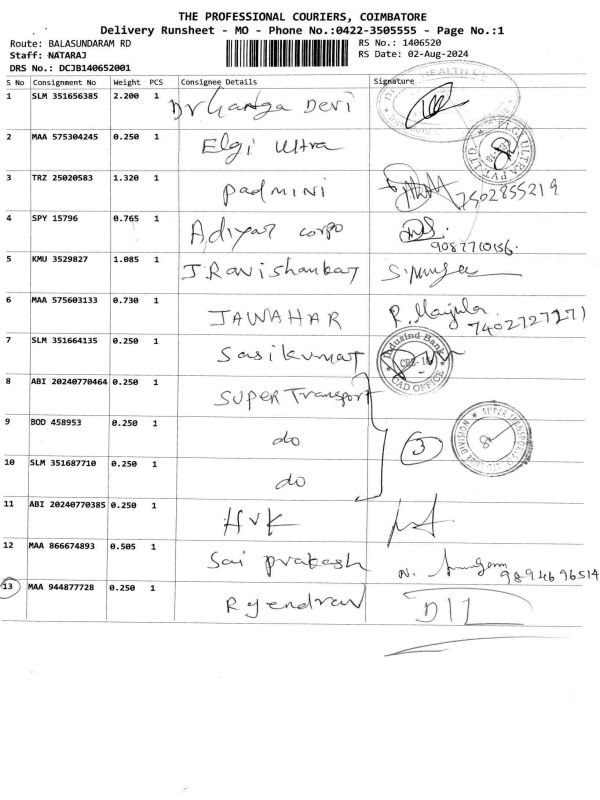 THE PROFESSIONAL COURIERS, COIMBATORE
Delivery Runsheet - MO - Phone No.:0422-3505555 - Page No.:1
Route: BALASUNDARAM RD RS No.: 1406520
Staff: NATARAJ RS Date: 02-Aug-2024
DRS No.: DCJB140652001
S No Consignment No Weight PCS Consignee Details Signature
1 SLM 351656385 2.200 1 Dr Ganga Devi
2 MAA 575304245 0.250 1 Elgi Ultra
ELGI ULTRA PVT LTD
3 TRZ 25020583 1.320 1 padmini 7502855219
4 SPY 15796 0.765 1 Adiyar corpo
5 KMU 3529827 1.085 1 J.Ravishankar
6 MAA 575603133 0.730 1 JAWAHAR R. Manjula
7402727271
7 SLM 351664135 0.250 1 Sasikumar Indusind Bank
CAD OFFICE
8 ABI 20240770464 0.250 1 SUPER Transport
9 BOD 458953 0.250 1 do 3
10 SLM 351687710 0.250 1 do
11 ABI 20240770385 0.250 1 HVK
12 MAA 866674893 0.505 1 Sai prakash N. 9894696514
13 MAA 944877728 0.250 1 Rajendran